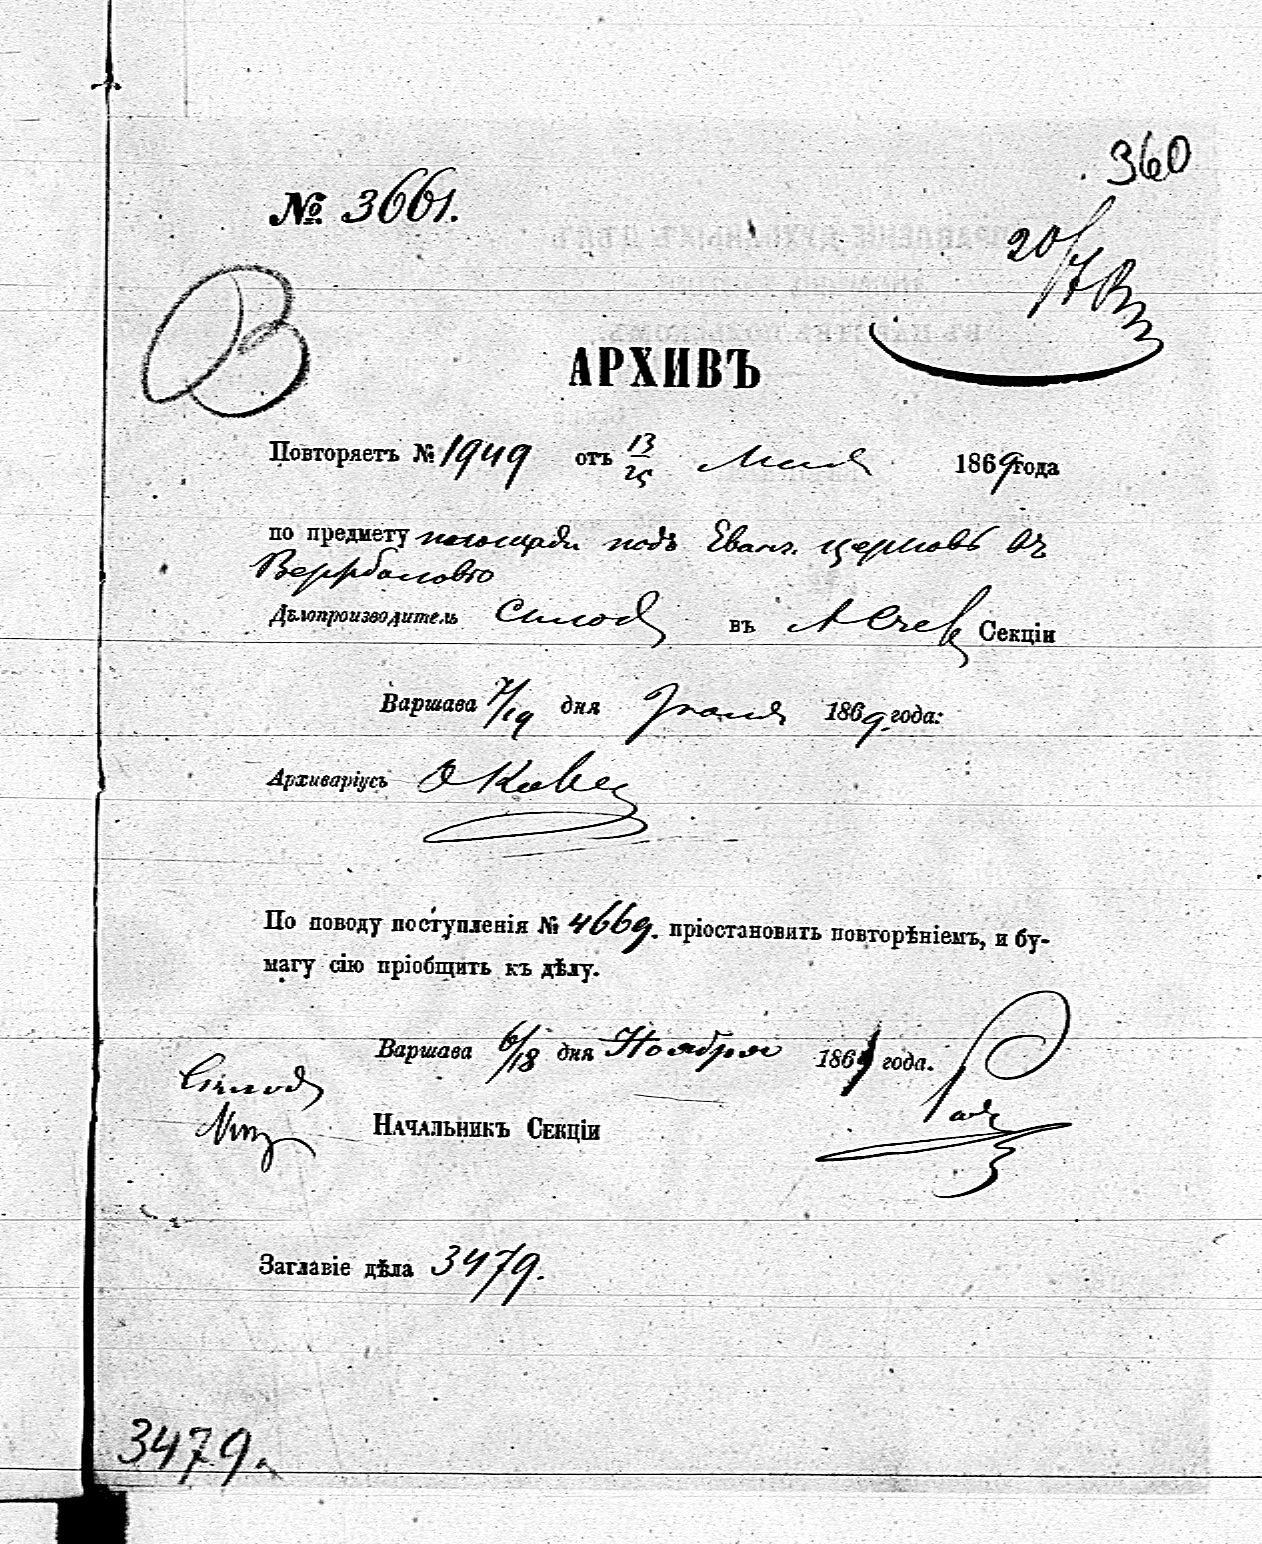 360
№ 3661.
20/7
В
АРХИВЪ
Повторяетъ № 1949 отъ 13/25 Мая 1869 года
по предмету площади подъ Еванг. церковь въ
Вержболовѣ
Дѣлопроизводитель въ Секціи
Варшава 7/19 дня Іюня 1869 года:
Архиваріусъ
По поводу поступленія № 4669. пріостановить повтореніемъ, и бу-
магу сію пріобщить къ дѣлу.
Варшава 6/18 дня Ноября 1869 года.
Начальникъ Секціи
Заглавіе дѣла 3479.
3479.